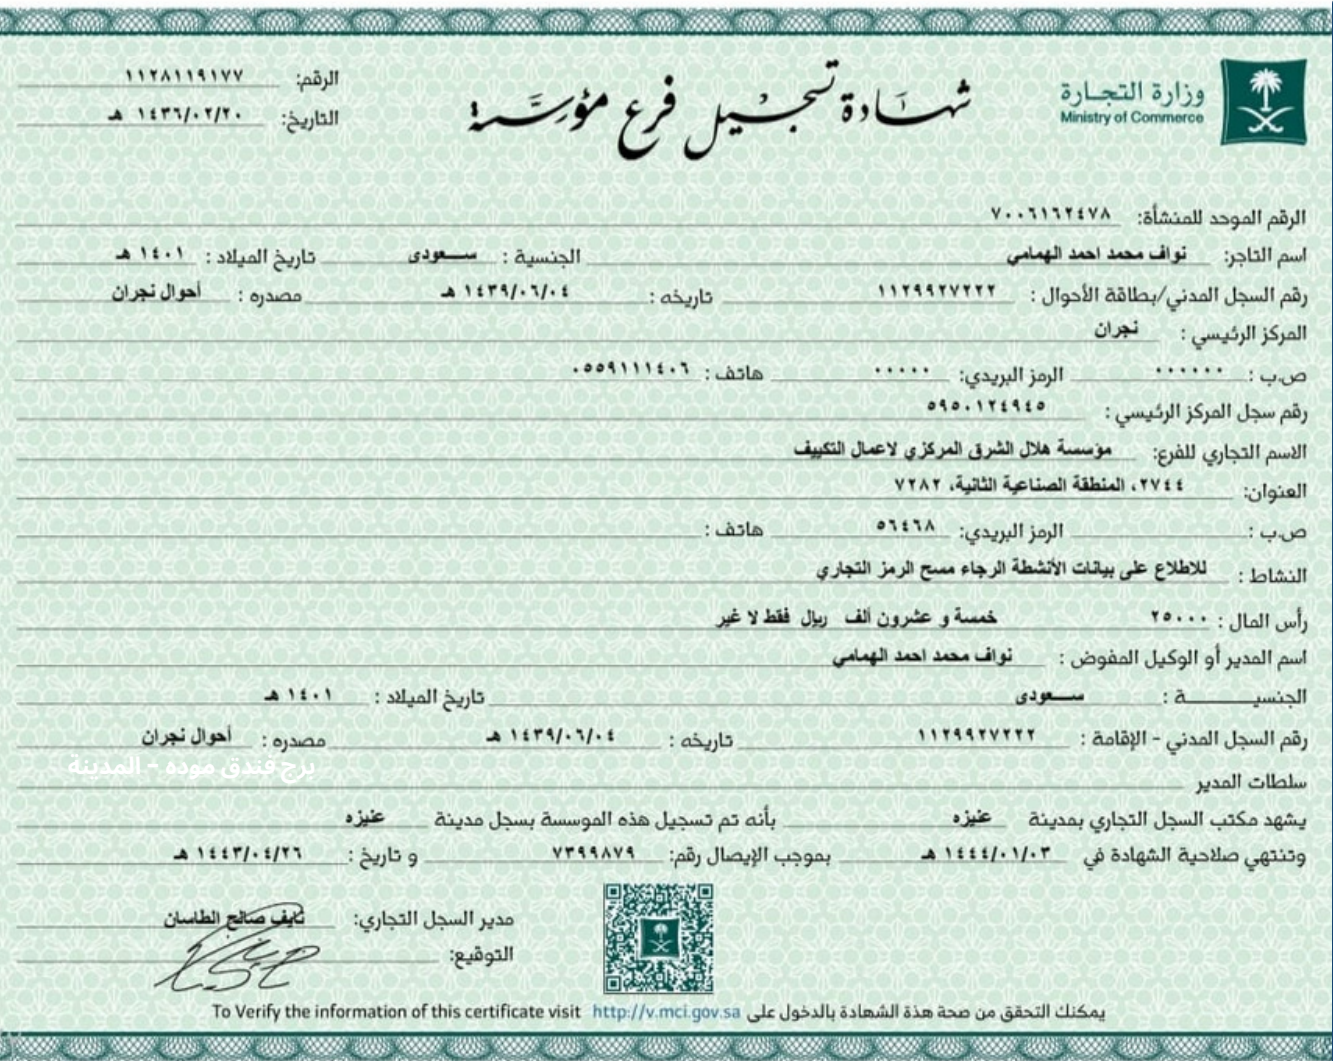 وزارة التجارة
Ministry of Commerce
شهادة تسجيل فرع مؤسسة
الرقم: ١١٢٨١١٩١٧٧
التاريخ: ١٤٣٦/٠٢/٢٠ هـ
الرقم الموحد للمنشأة: ٧٠٠٦١٦٢٤٧٨
اسم التاجر: نواف محمد احمد الهمامي الجنسية : سعودى تاريخ الميلاد : ١٤٠١ هـ
رقم السجل المدني/بطاقة الأحوال : ١١٢٩٩٢٧٢٢٢ تاريخه : ١٤٣٩/٠٦/٠٤ هـ مصدره : أحوال نجران
المركز الرئيسي : نجران
ص.ب : ٠٠٠٠٠٠ الرمز البريدي: ٠٠٠٠٠ هاتف : ٠٥٥٩١١١٤٠٦
رقم سجل المركز الرئيسي : ٥٩٥٠١٢٤٩٤٥
الاسم التجاري للفرع: مؤسسة هلال الشرق المركزي لاعمال التكييف
العنوان: ٢٧٤٤، المنطقة الصناعية الثانية، ٧٢٨٢
ص.ب : الرمز البريدي: ٥٦٤٦٨ هاتف :
النشاط : للاطلاع على بيانات الأنشطة الرجاء مسح الرمز التجاري
رأس المال : ٢٥٠٠٠ خمسة و عشرون ألف ريال فقط لا غير
اسم المدير أو الوكيل المفوض : نواف محمد احمد الهمامي
الجنسيـــــــة : سعودى تاريخ الميلاد : ١٤٠١ هـ
رقم السجل المدني - الإقامة : ١١٢٩٩٢٧٢٢٢ تاريخه : ١٤٣٩/٠٦/٠٤ هـ مصدره : أحوال نجران
برج فندق موده - المدينة
سلطات المدير
يشهد مكتب السجل التجاري بمدينة عنيزه بأنه تم تسجيل هذه الموسسة بسجل مدينة عنيزه
وتنتهي صلاحية الشهادة في ١٤٤٤/٠١/٠٣ هـ بموجب الإيصال رقم: ٧٣٩٩٨٧٩ و تاريخ : ١٤٤٣/٠٤/٢٦ هـ
مدير السجل التجاري: نايف صالح الطاسان
التوقيع:
يمكنك التحقق من صحة هذة الشهادة بالدخول على http://v.mci.gov.sa To Verify the information of this certificate visit